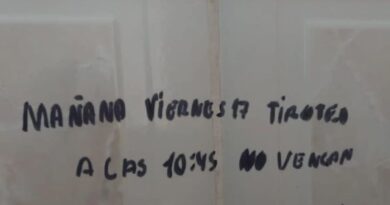 MAÑANO VIERNES 17 TIROTEO
A LAS 10:45 NO VENGAN